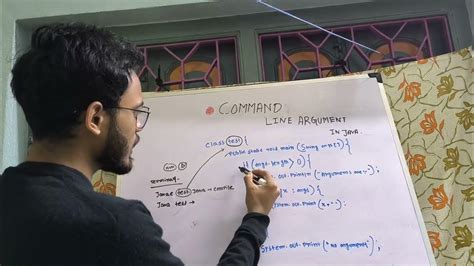 COMMAND
LINE ARGUMENT
IN JAVA.
Class test {
Public static void main (String
if (args.length > 0) {
out. Println ("Arguments are:-");
(x : args) {
System. out. Print (x + " ");
System. out. Print ("no arguments");
terminal
Javac test.Java →
Java test →